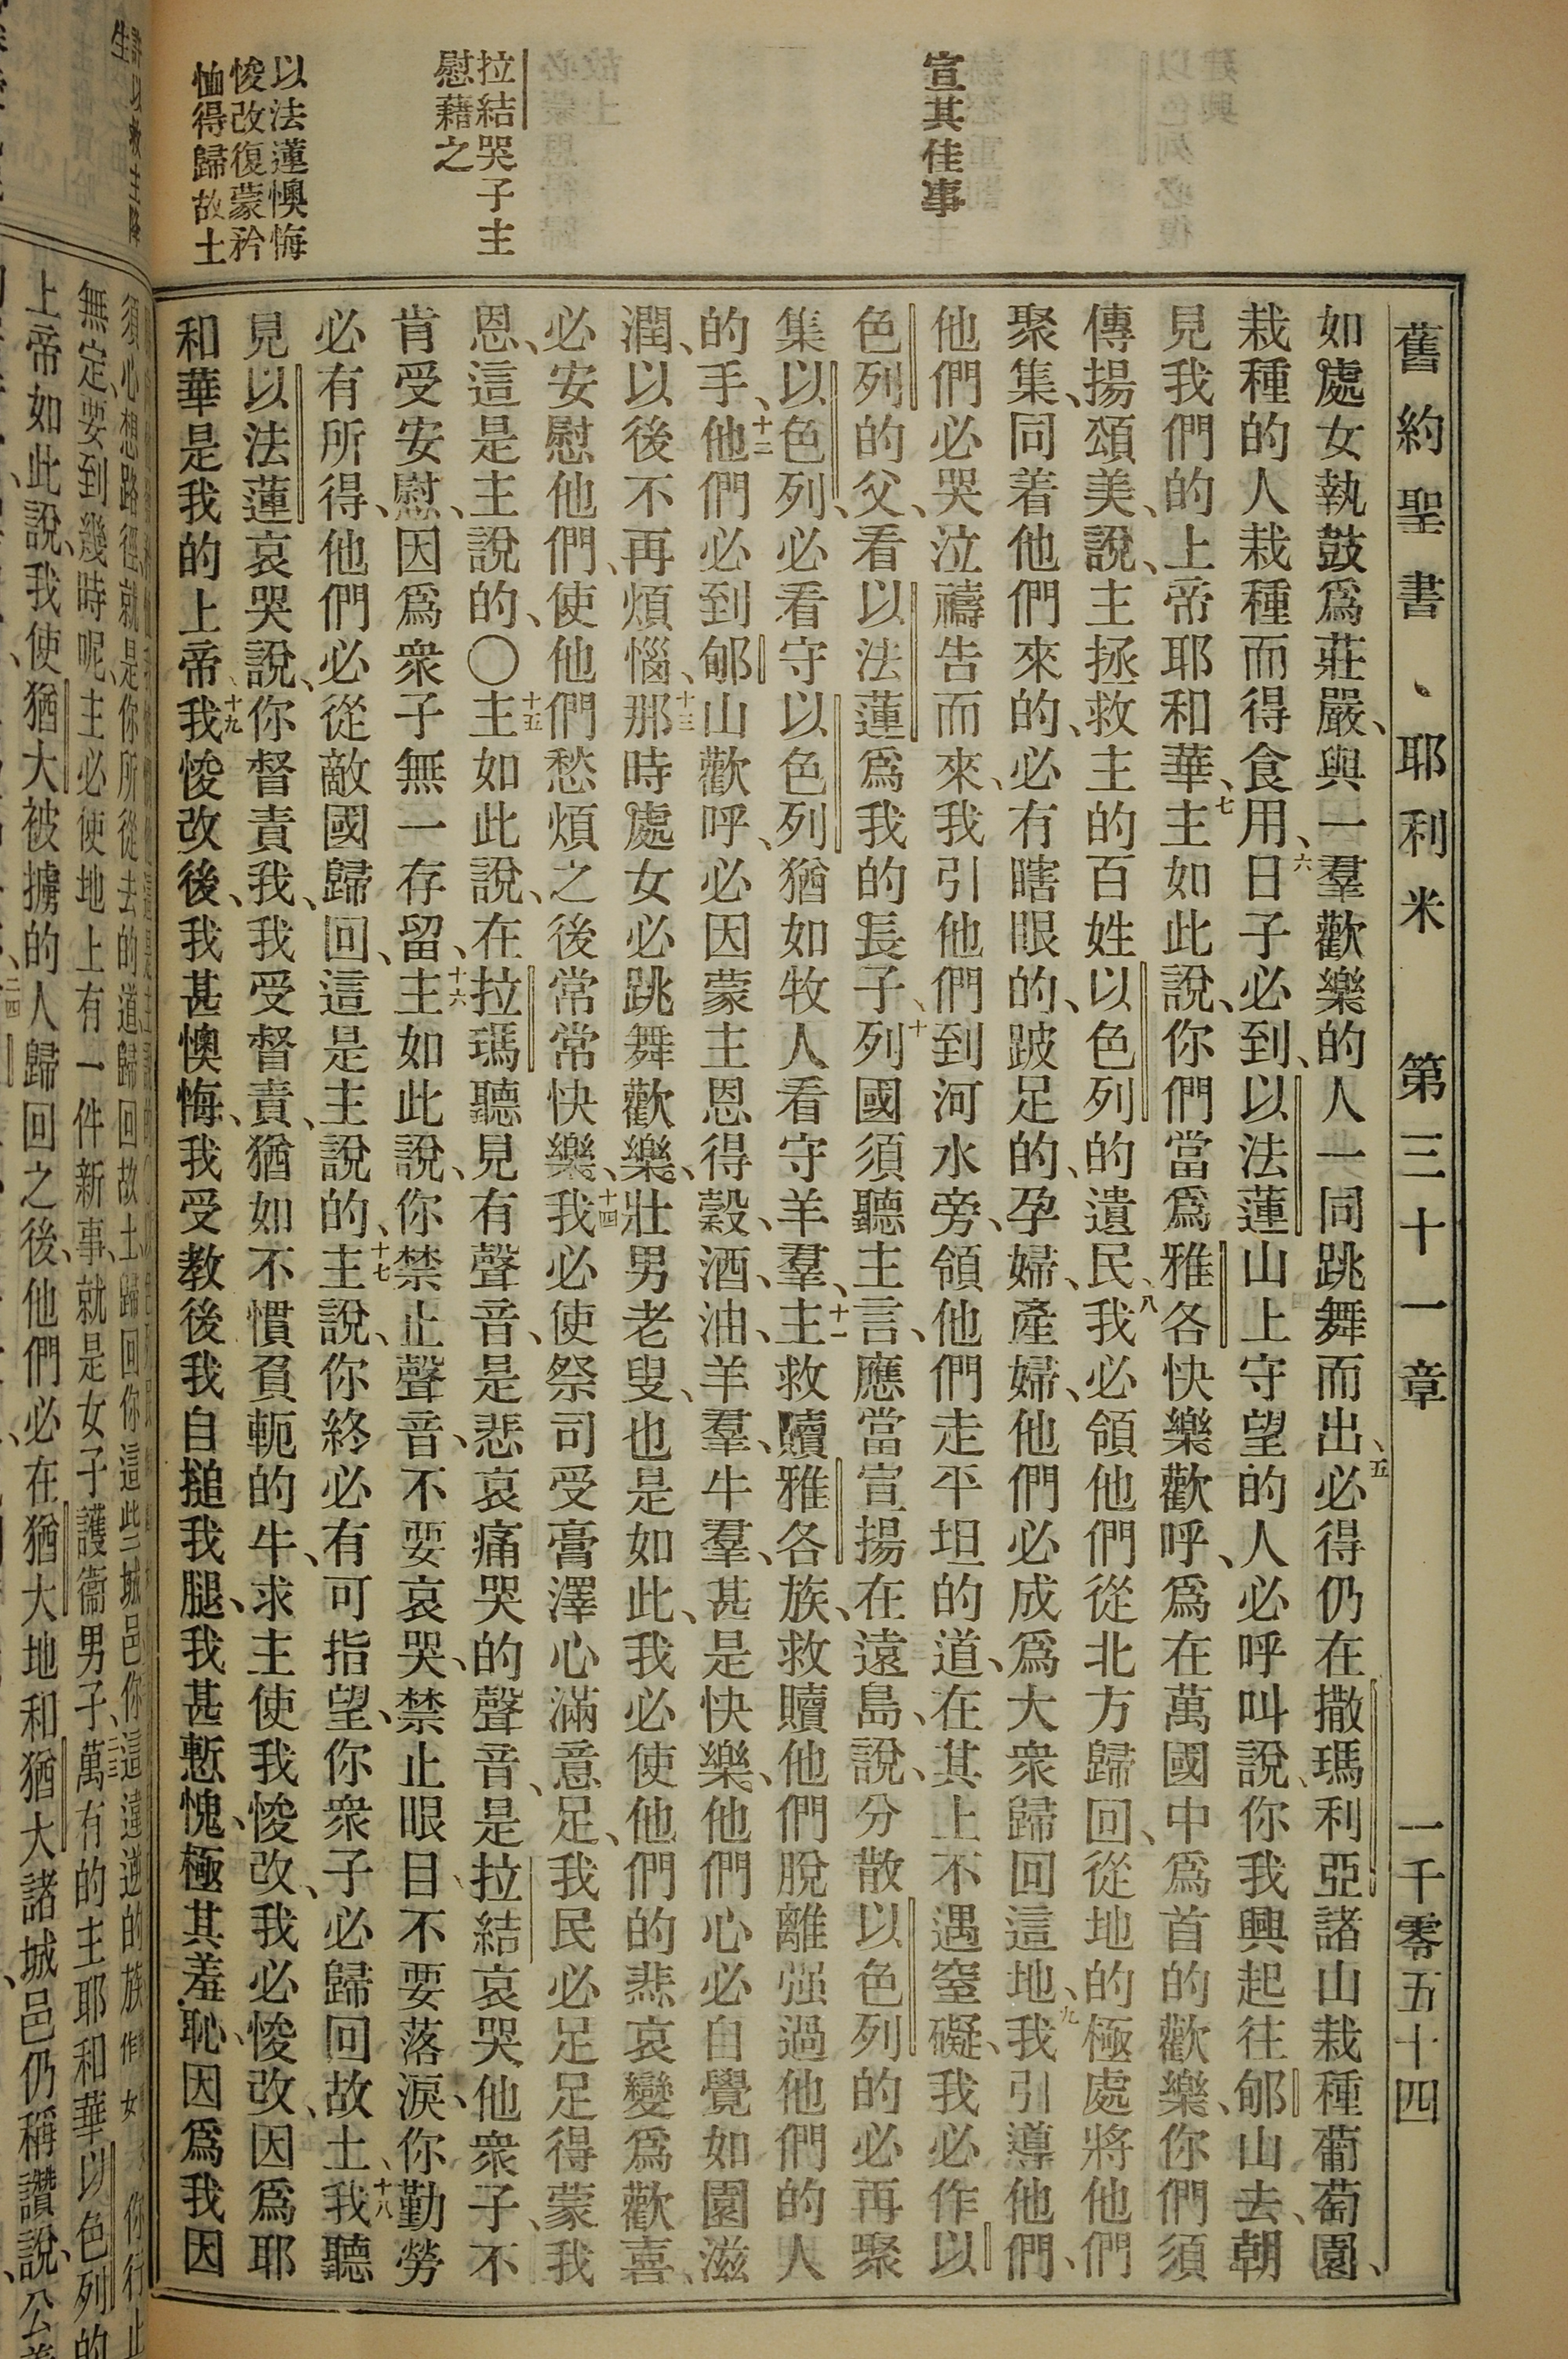 舊約聖書、耶利米 第三十一章 一千零五十四
宣其佳事
拉結哭子主
慰藉之
以法蓮懊悔
悛改復蒙矜
恤得歸故土
如處女執鼓爲莊嚴、與一羣歡樂的人一同跳舞而出、五必得仍在撒瑪利亞諸山栽種葡萄園、
栽種的人栽種而得食用、六日子必到、以法蓮山上守望的人必呼叫說、你我興起往郇山去、朝
見我們的上帝耶和華、七主如此說、你們當爲雅各快樂歡呼、爲在萬國中爲首的歡樂、你們須
傳揚頌美、說、主拯救主的百姓以色列的遺民、八我必領他們從北方歸回、從地的極處將他們
聚集、同着他們來的、必有瞎眼的、跛足的、孕婦、產婦、他們必成爲大衆歸回這地、九我引導他們、
他們必哭泣禱告而來、我引他們到河水旁、領他們走平坦的道、在其上不遇窒礙、我必作以
色列的父、看以法蓮爲我的長子、十列國須聽主言、應當宣揚在遠島、說、分散以色列的必再聚
集以色列、必看守以色列猶如牧人看守羊羣、十一主救贖雅各族、救贖他們脫離强過他們的人
的手、十二他們必到郇山歡呼、必因蒙主恩得穀、酒、油、羊羣、牛羣、甚是快樂、他們心必自覺如園滋
潤、以後不再煩惱、十三那時處女必跳舞歡樂、壯男老叟、也是如此、我必使他們的悲哀變爲歡喜、
必安慰他們、使他們愁煩之後常常快樂、十四我必使祭司受膏澤心滿意足、我民必足足得蒙我
恩、這是主說的、○十五主如此說、在拉瑪聽見有聲音、是悲哀痛哭的聲音、是拉結哀哭他衆子、不
肯受安慰、因爲衆子無一存留、十六主如此說、你禁止聲音、不要哀哭、禁止眼目、不要落淚、你勤勞
必有所得、他們必從敵國歸回、這是主說的、十七主說、你終必有可指望、你衆子必歸回故土、十八我聽
見以法蓮哀哭說、你督責我、我受督責、猶如不慣負軛的牛、求主使我悛改、我必悛改、因爲耶
和華是我的上帝、十九我悛改後、我甚懊悔、我受教後我自搥我腿、我甚慙愧、極其羞恥、因爲我因
無定、要到幾時呢、主必使地上有一件新事、就是女子護衞男子、萬有的主耶和華以色列的
上帝如此說、我使猶大被擄的人歸回之後、他們必在猶大地和猶大諸城邑仍稱讚說、